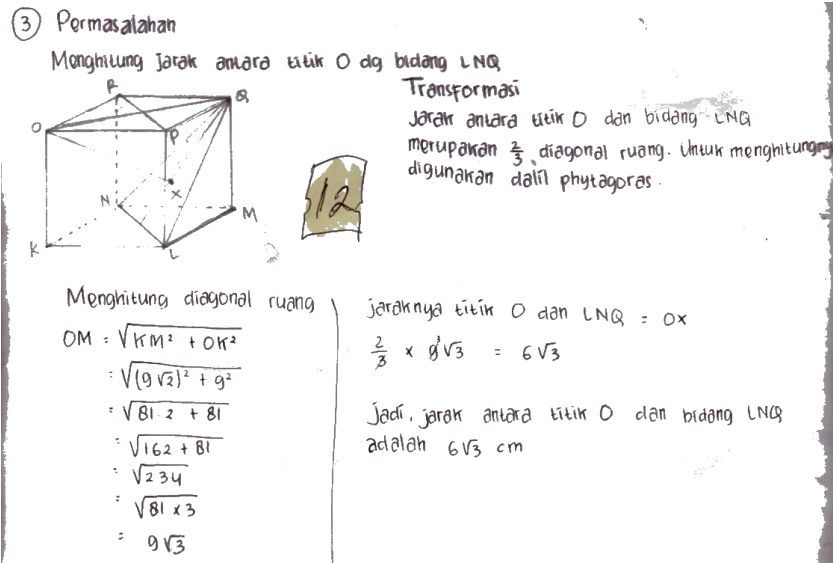 3 Permasalahan
Menghitung Jarak antara titik O dg bidang LNQ
R
Q
O
P
N
X
M
K
L
12
Transformasi
Jarak antara titik O dan bidang LNQ
merupakan 2/3 diagonal ruang. Untuk menghitungny
digunakan dalil phytagoras.
Menghitung diagonal ruang
OM = √KM² + OK²
= √(9√2)² + 9²
= √81.2 + 81
= √162 + 81
= √234
= √81 x 3
= 9√3
jaraknya titik O dan LNQ = OX
2/3 x 9³√3 = 6√3
Jadi, jarak antara titik O dan bidang LNQ
adalah 6√3 cm